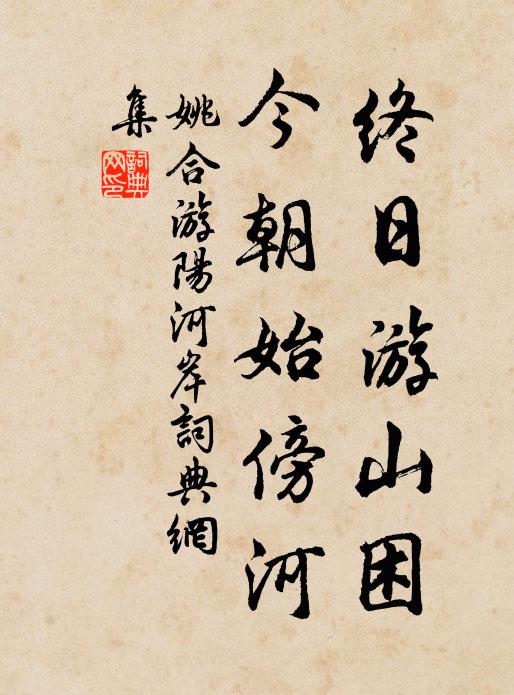 終日游山困
今朝始傍河
姚合游陽河岸詞典網
集
詞典
网印